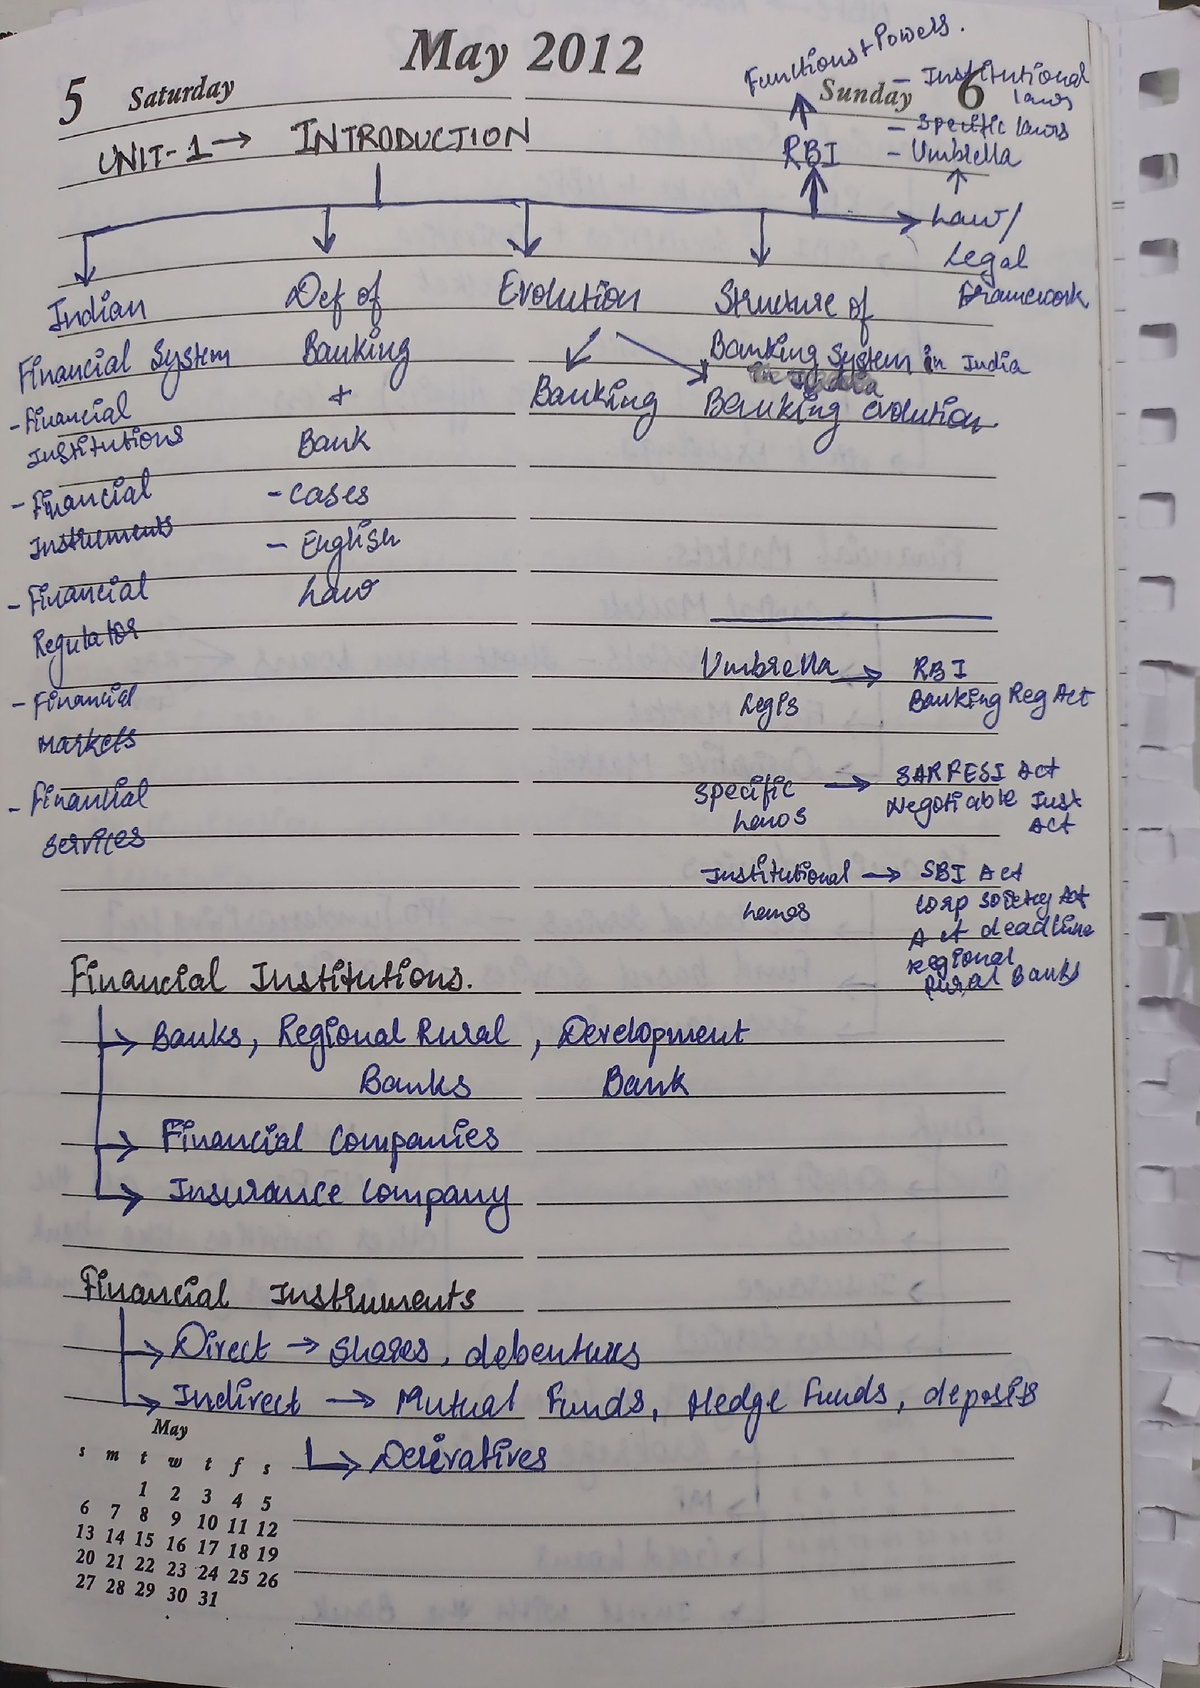 May 2012
5 Saturday
Sunday 6
Functions + Powers.
- Institutional
laws
- Specific laws
- Umbrella
RBI
UNIT-1 → INTRODUCTION
Law/
Legal
Framework
Indian
Financial System
- Financial
Institutions
- Financial
Instruments
- Financial
Regulator
- Financial
Markets
- Financial
Services
Def of
Banking
+
Bank
- Cases
- English
Law
Evolution
Banking
Banking evolution
Structure of
Banking System in India
Umbrella → RBI
Legis
Banking Reg Act
Specific → SARFESI Act
Laws
Negotiable Inst
Act
Institutional → SBI Act
Laws
Corp society Act
Act deadline
regional
Rural Banks
Financial Institutions.
→ Banks, Regional Rural, Development
Banks Bank
→ Financial Companies
→ Insurance Company
Financial Instruments
→ Direct → Shares, debentures
→ Indirect → Mutual Funds, Hedge Funds, deposits
→ Derivatives
May
s m t w t f s
1 2 3 4 5
6 7 8 9 10 11 12
13 14 15 16 17 18 19
20 21 22 23 24 25 26
27 28 29 30 31